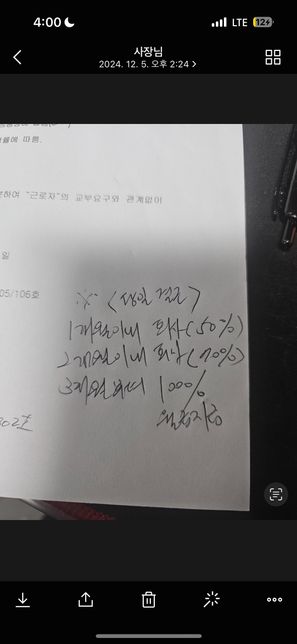 4:00
LTE
12
사장님
2024. 12. 5. 오후 2:24 >
률에 따름.
하여 "근로자"의 교부요구와 관계없이
일
05/106호
※ < 당일 결근 >
1개월이내 퇴사 (50%)
2개월이내 퇴사 (70%)
3개월 100%
월급지급